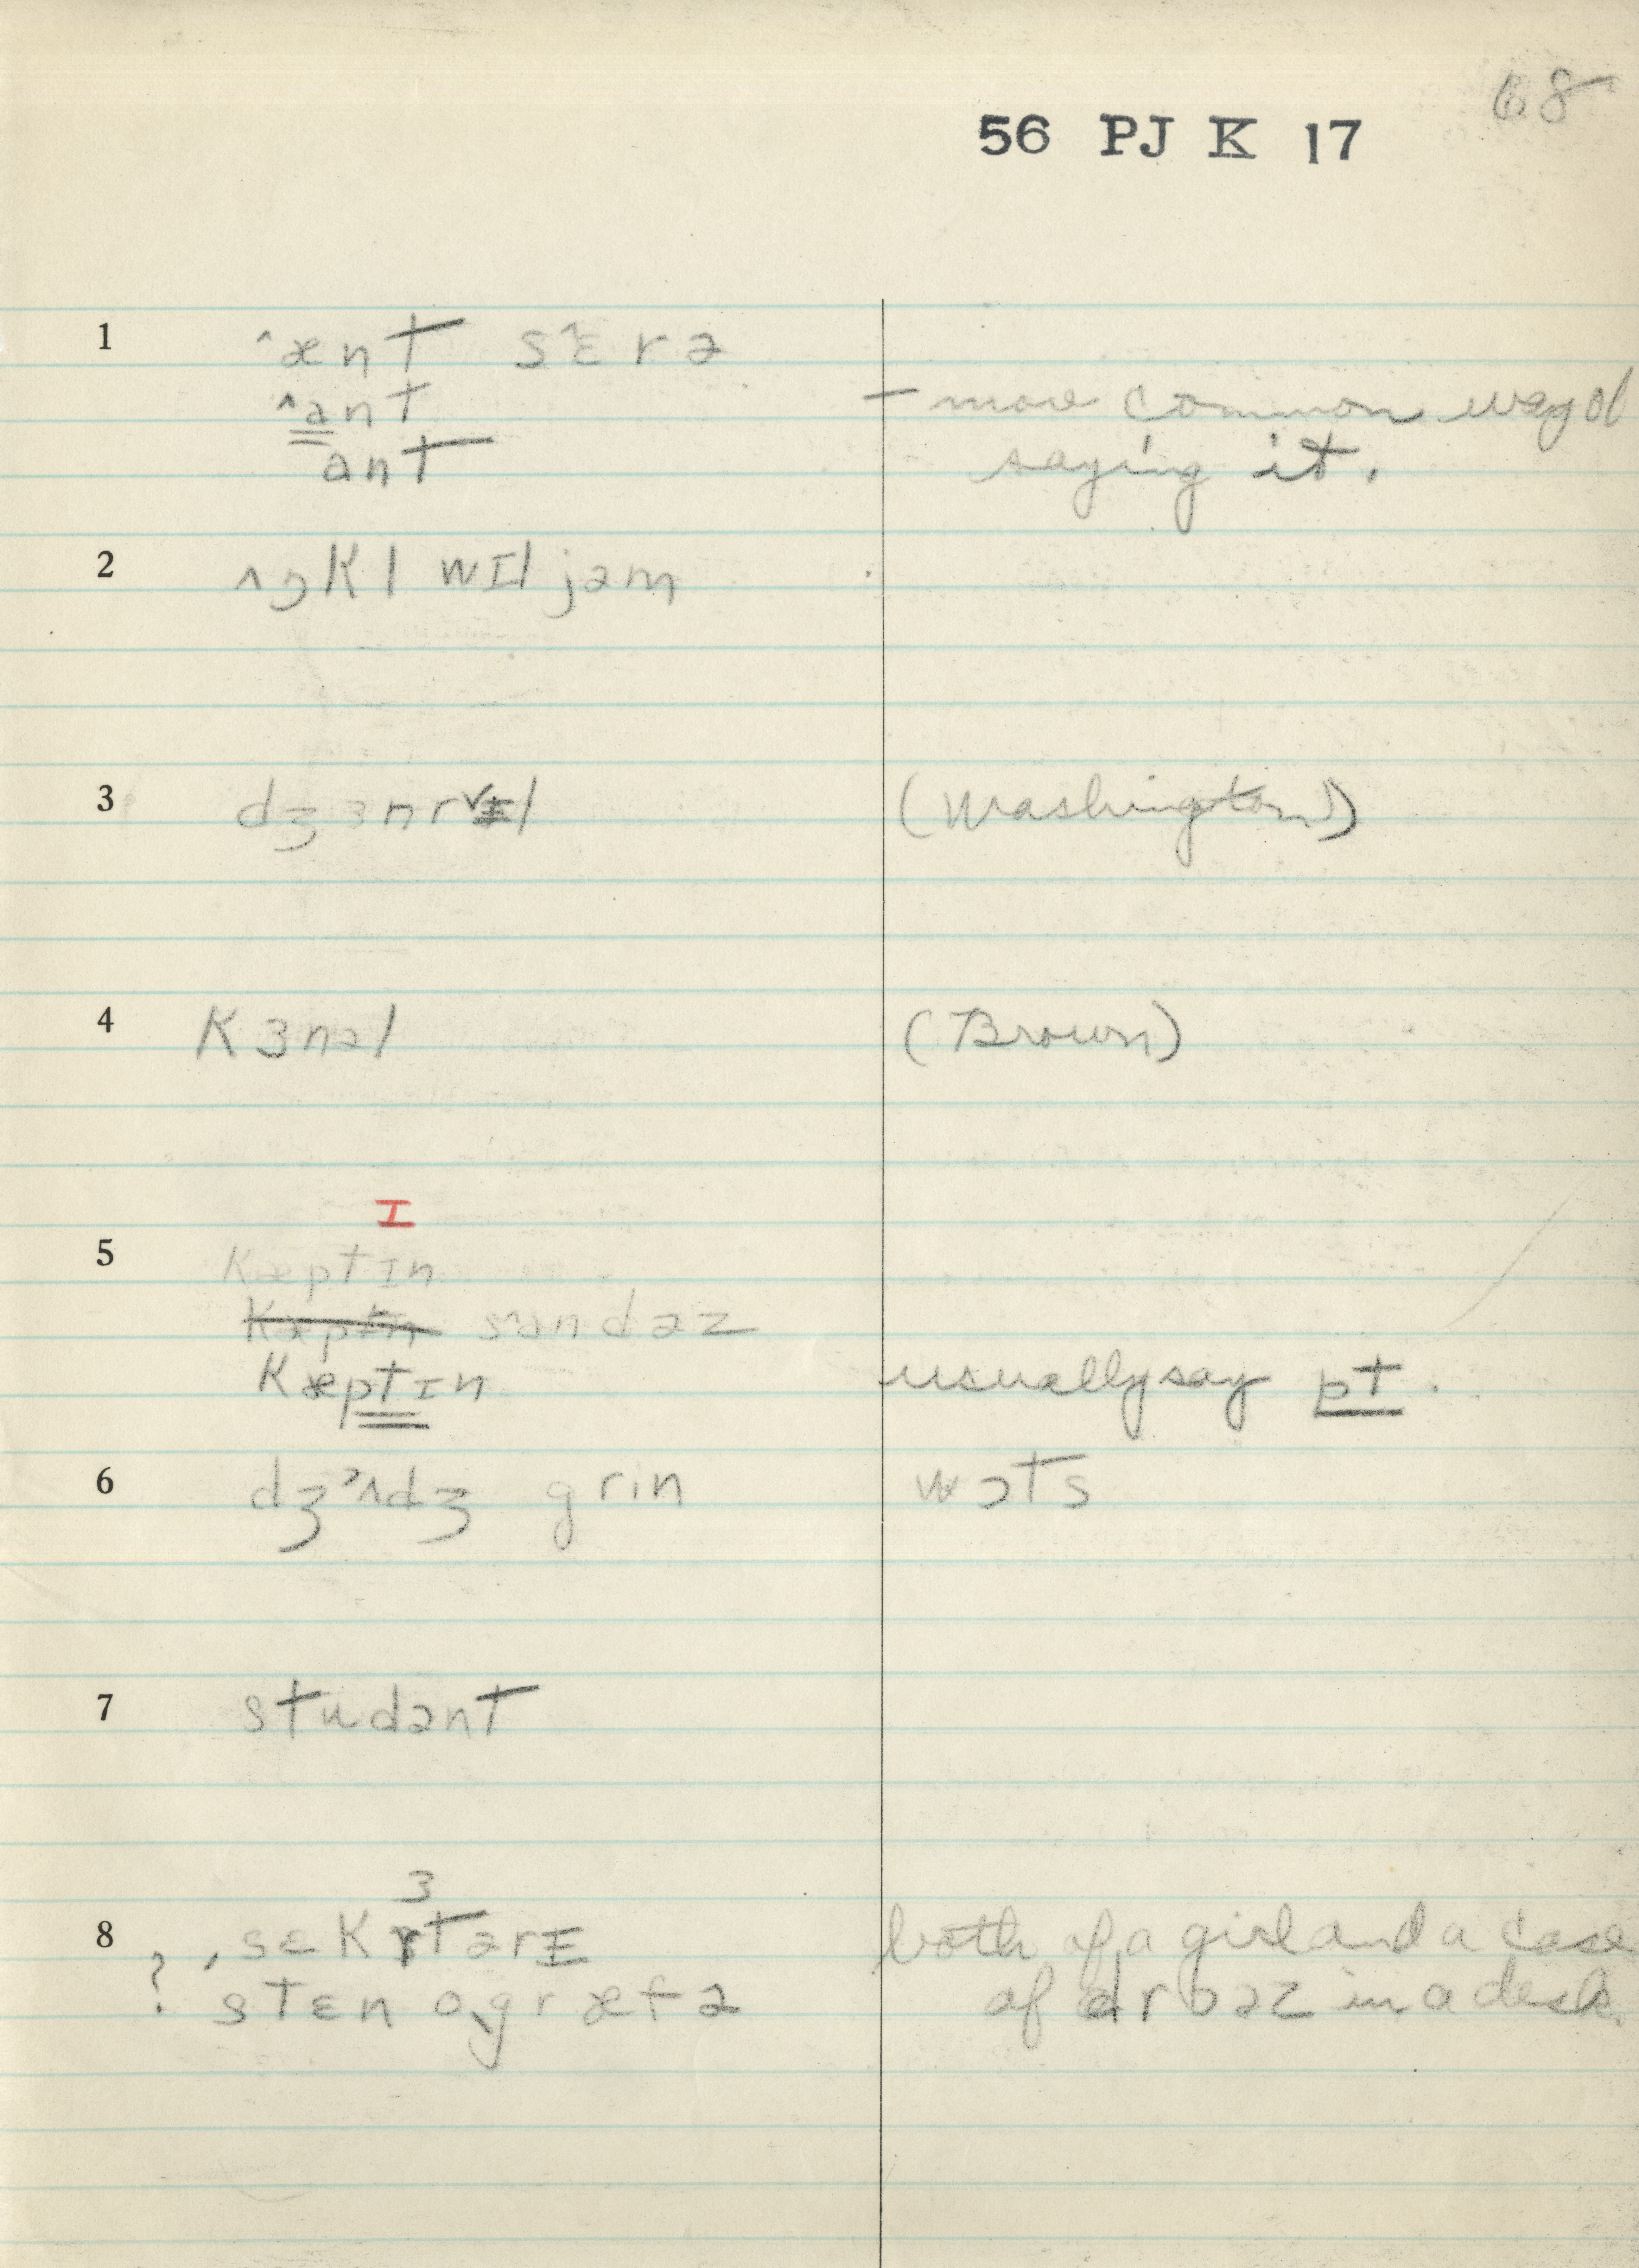 68
56 PJ K 17
1 ˆænt sɛ̂rə
ˆant — more common way of
ant saying it.
2 ʌŋkl wɪljəm
3 (Washington)
4 kɜnəl (Brown)
ɪ
5 kæptɪn
kæptɪn
kæptɪn usually say pt.
6 dʒˈʌdʒ grin wɔts
7 studənt
ɜ
8 ,sɛkrtərɪ both of a girl and a case
? stɛnogræfə of drɔəz in a desk.